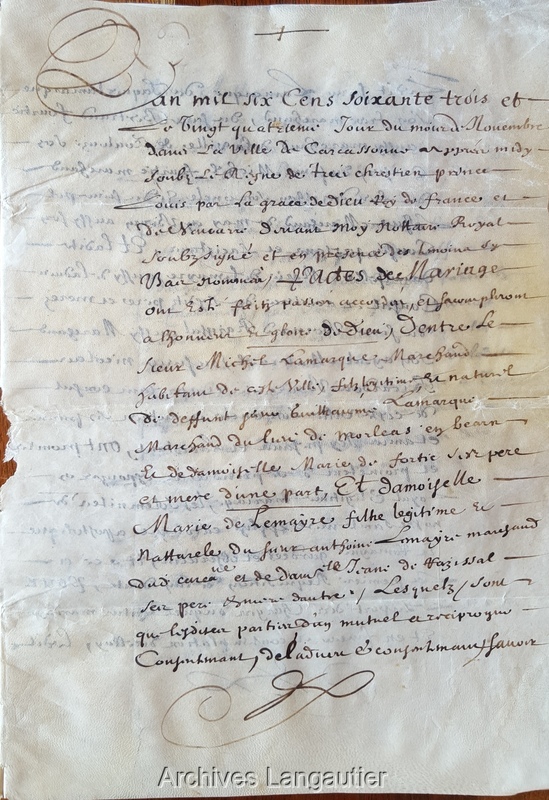 L'an mil six Cens soixante trois et
Le Vingt quatrieme Jour du mois de Novembre
dans La Ville de Carcassonne apprès midy
Soubz Le Reigne de tres chrestien prince
Louis par La grace de dieu Roy de France et
de Navarre devant Moy Nottaire Royal
soubzsigné et en presence des tesmoins cy
Bas nommes, Pactes de Mariage
ont esté faitz passes accordes, et
a lhonneur & gloire de dieu, Dentre Le
sieur Michel Lamarque Marchand
habitant de cest Ville, filz legitime & naturel
de deffunt sieur Guilhaume Lamarque
Marchand du lieu de Morleas en bearn
Et de damoiselle Marie de fortic ses pere
et mere dune part, Et damoiselle
Marie de Lemayre filhe legitime &
Natturele du sieur anthoine Lemayre marchand
dud carca^ne et de dam^elle Jeane de
ses pere & mere dautre, Lesquelz, sont
que lesdites parties dun mutuel & reciproque
Consentement, de ladvis & consentement, scavoir
Archives Langautier